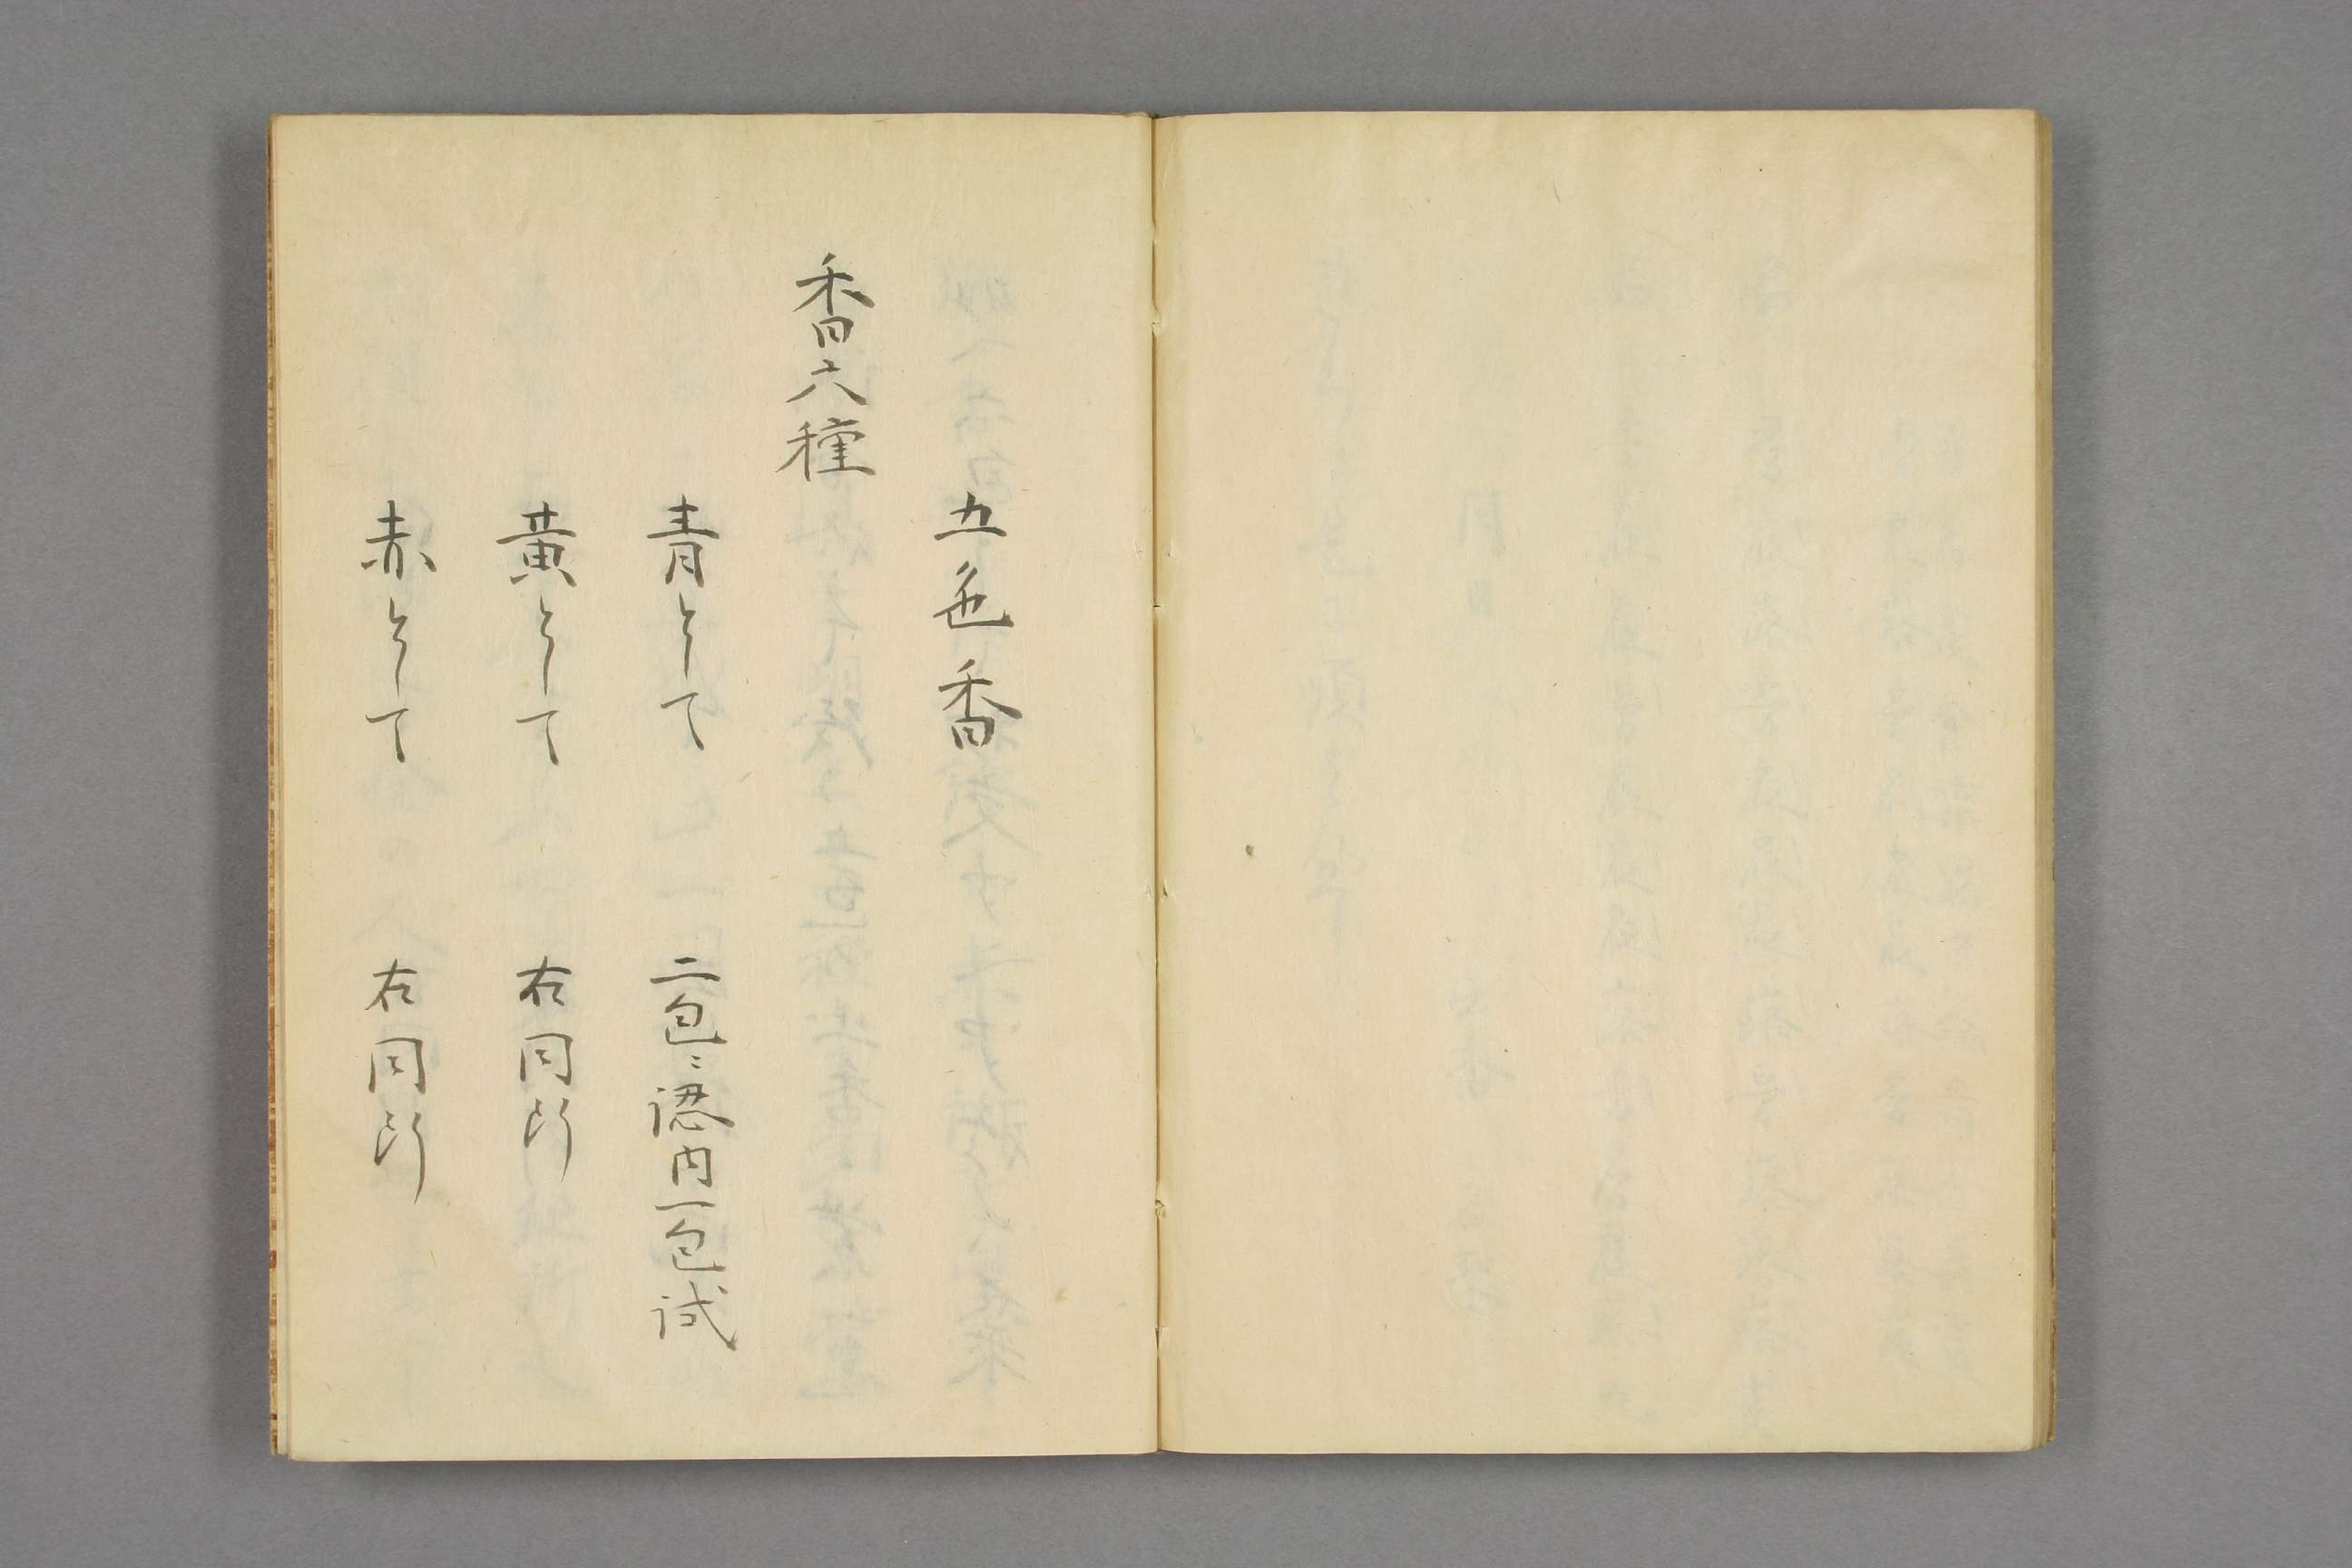 五色香
香六種
青として 二包ニ認内一包試
黄として 右同断
赤として 右同断